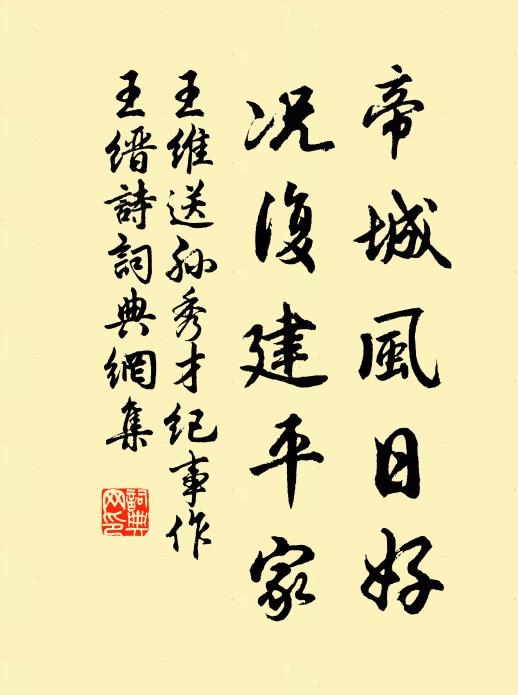 帝城風日好
况復建平家
王維送孙秀才紀事作
王缙詩詞典網集
詞典网印